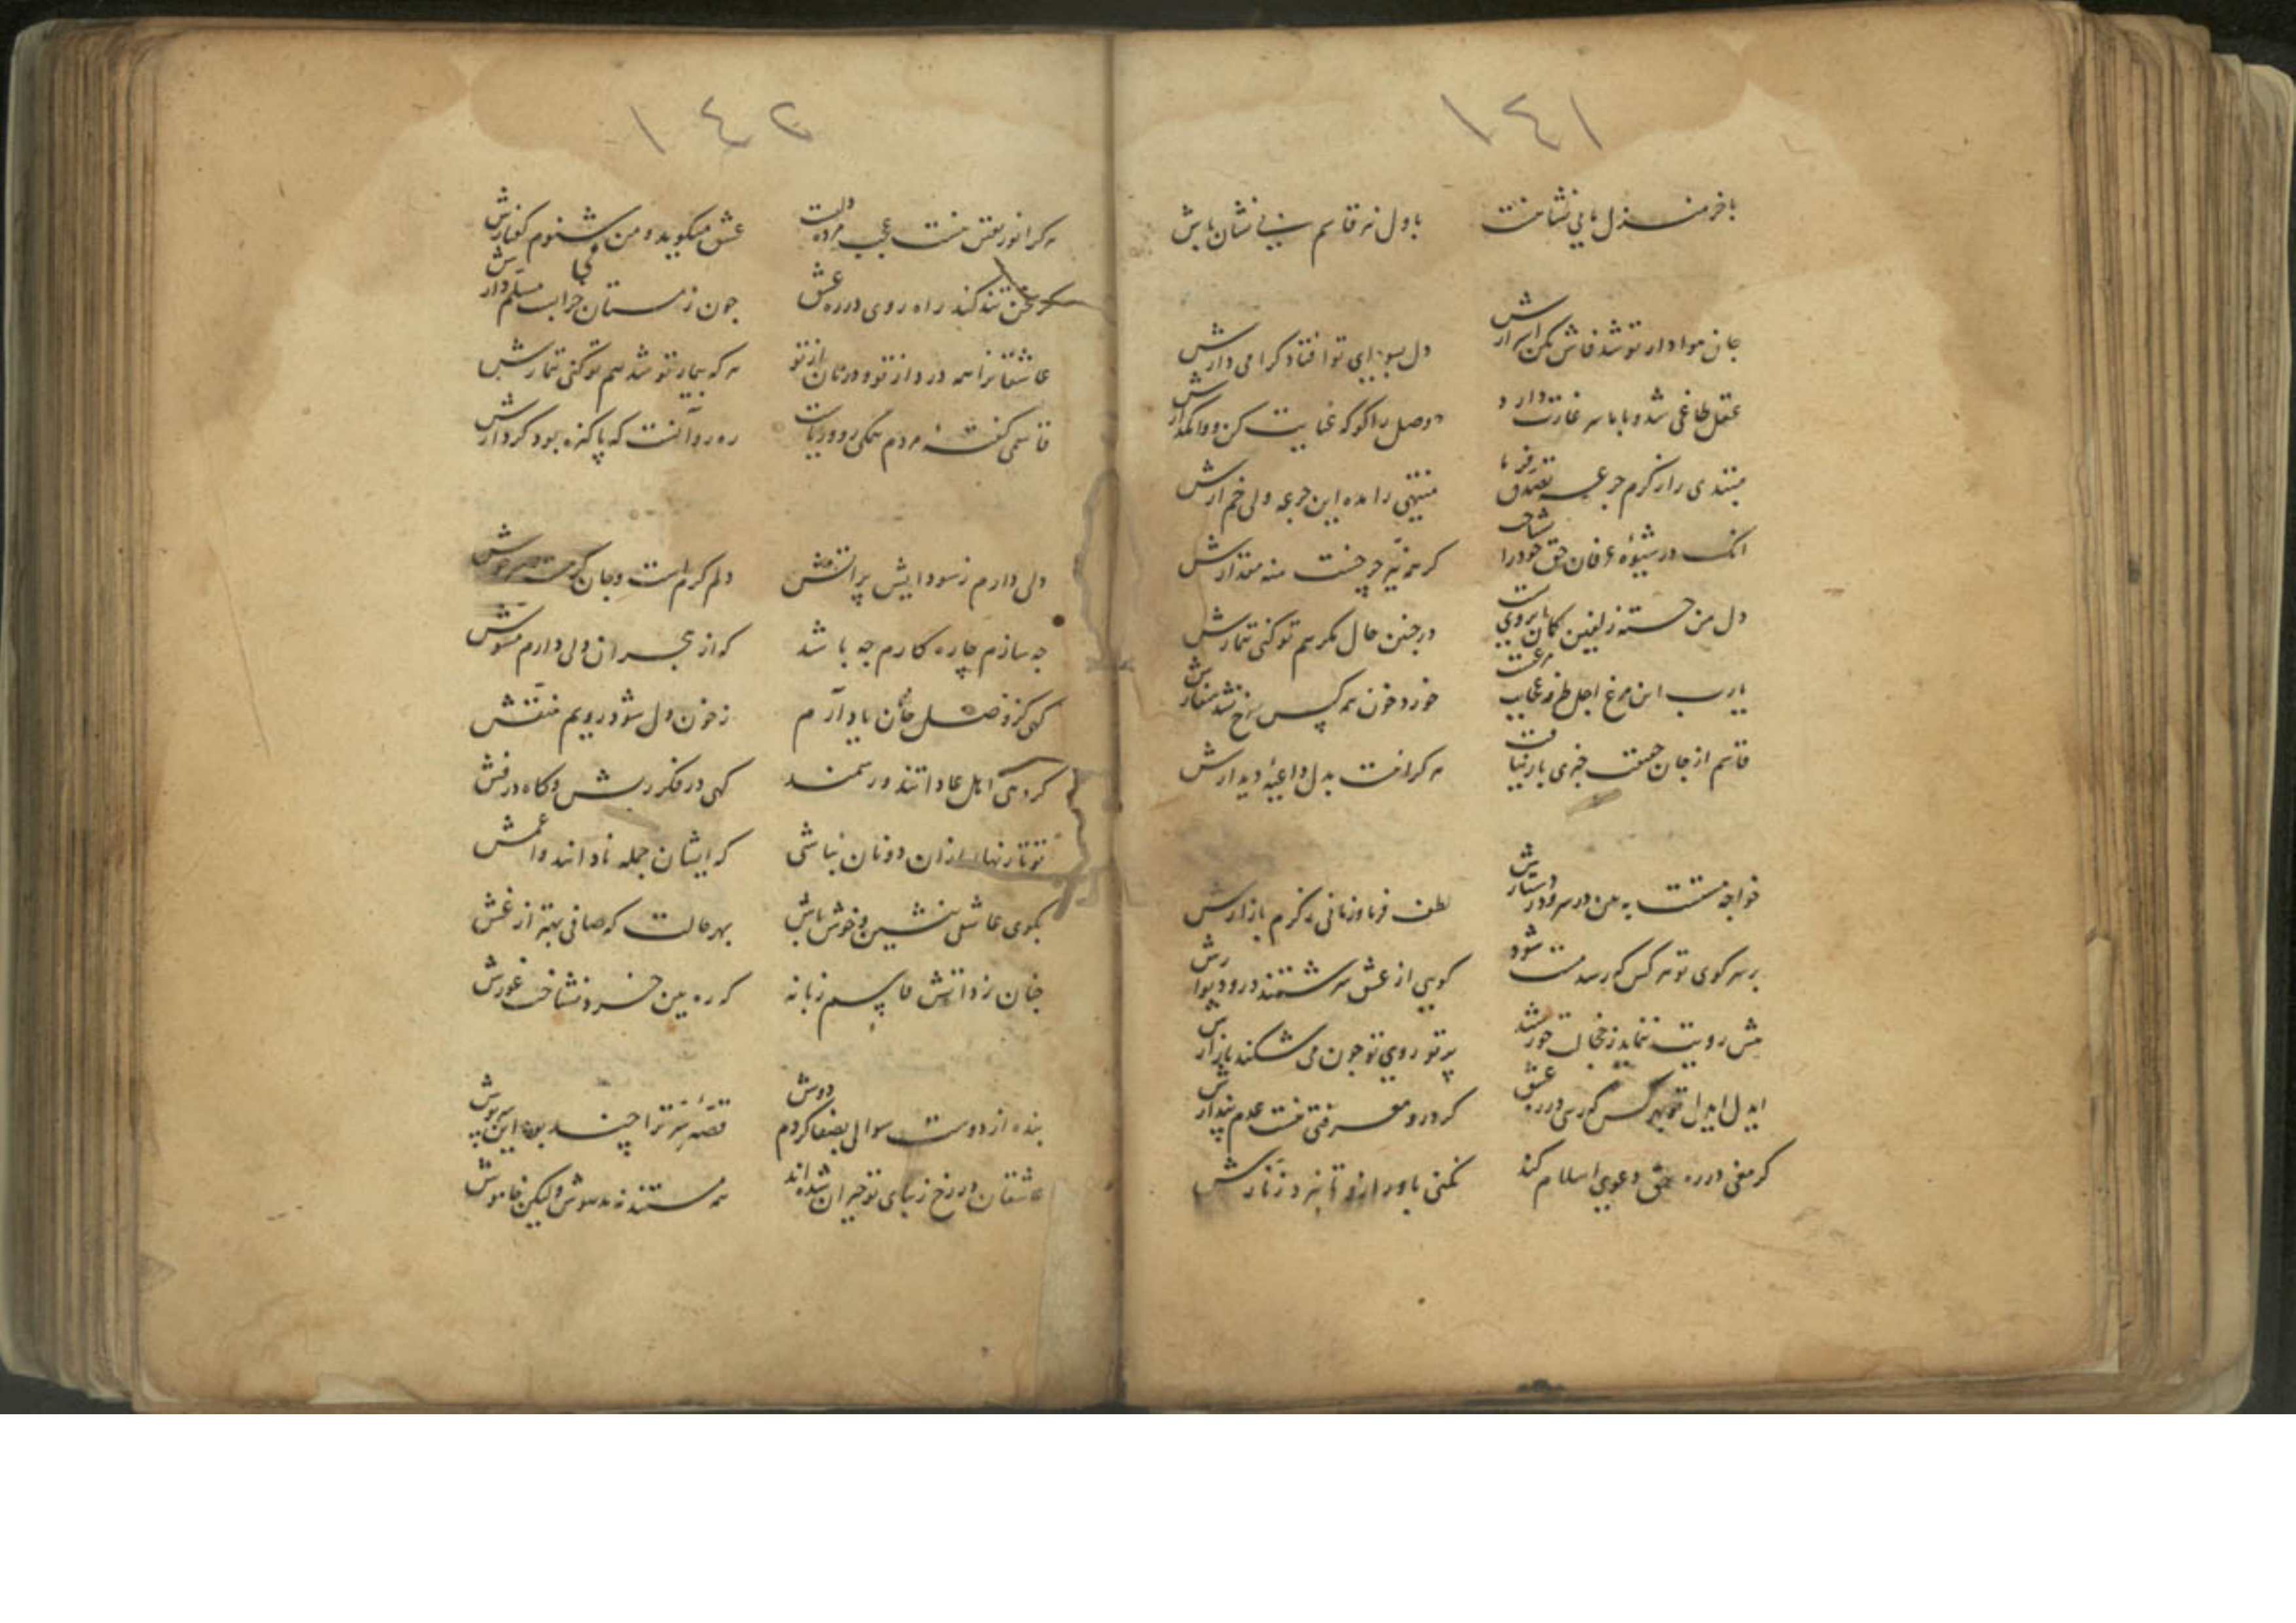 ١٤١
بآخر منزل ما بی نشانست
باول نیز قاسم بی نشان باش
جان هوادار تو شد فاش مکن اسرارش
دل بسودای تو افتاد گرامی دارش
عقل طاغی شد و با ما سر غارت دارد
وصل را کو که عنایت کن و وامگذارش
مبتدی را ز کرم جرعه تصدق فرما
منتهی را مده این جرعه ولی خم آرش
انک در شیوه عرفان حق خود را نشناخت
کر همه نیر چرخست منه مقدارش
دل من خسته زلفین کمان ابرویت
در چنین حال مکر هم تو کنی تیمارش
یارب این مرغ اجل طرفه عجایب مرغست
خورد خون همه کس سرخ نشد منقارش
قاسم از جان حقیقت خبری باز نیافت
هر کرا نیست بدل داعیهٔ دیدارش
خواجه مستست به بین در سر و دستارش
لطف فرما و زمانی ز کرم باز آرش
بر سر کوی تو هر کس که رسد مست شود
کویی از عشق سرشتند در و دیوارش
پیش رویت ننماید ز خجالت خورشید
پرتو روی تو چون می شکند بازارش
ایدل ایدل تو بهر کس که رسی در ره عشق
کر درو معرفتی نیست عدم پندارش
کر مغی در ره حق دعوی اسلام کند
نکنی باور ازو تا نبرد زنارش
١٤٢
هر کرا نور یقین نیست عجب مرده دلست
عشق میکوید و من می شنوم کفتارش
کر سخن تند کند راه روی در ره عشق
چون ز مستان خرابست مسلم دارش
عاشقانرا همه درد از تو و درمان از تو
هر که بیمار تو شد هم تو کنی تیمارش
قاسمی کفتهٔ مردم همکی رو و ریاست
ره رو آنست که پاکیزه بود کردارش
دلی دارم ز سودایش پر آتش
دلم کرم است و جان
چه سازم چاره کارم چه باشد
که از هجران دلی دارم مشوش
کهی کز وصل جانان یاد آرم
ز خون دل شود رویم منقش
کروهی اهل عاداتند و رسمند
کهی در فکر ریش و کاه در فش
تو تا زنهار ازان دونان نباشی
که ایشان جمله نادانند و اعمش
بکوی عاشقی بنشین و خوش باش
بهر حالت که صافی بهتر از غش
چنان زد آتش قاسم زبانه
که ره بین خرد نشناخت غورش
بنده از دوست سوالی بصفا کردم دوش
قصه سر ترا چند بود این سرپوش
عاشقان در رخ زیبای تو حیران شده‌اند
همه مستند نه مدهوش ولیکن خاموش